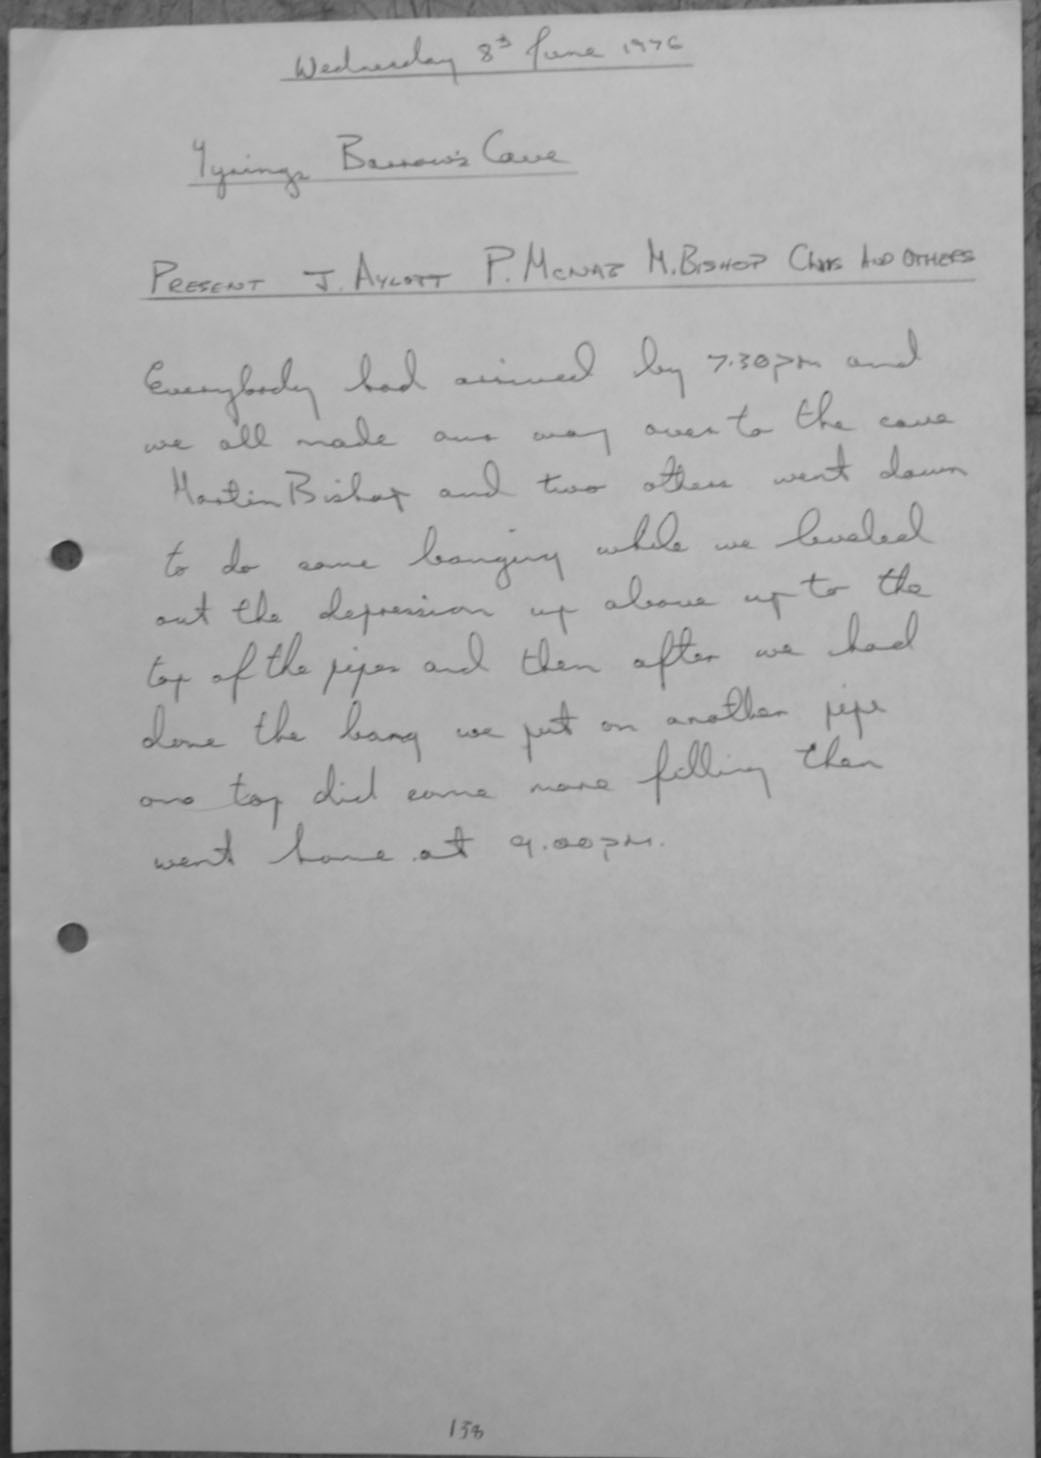 Wednesday 8th June 1976
Tynings Barrow's Cave
PRESENT J. AYLOTT P. MCNAB M. BISHOP CHRIS AND OTHERS
Everybody had arrived by 7.30PM and
we all made our way over to the cave
Martin Bishop and two others went down
to do some banging while we leveled
out the depression up above up to the
top of the pipes and then after we had
done the bang we put on another pipe
one top did some more filling then
went home at 9.00PM.
138